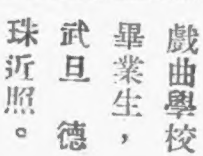 戲曲學校
畢業生，
武旦　德
珠近照。